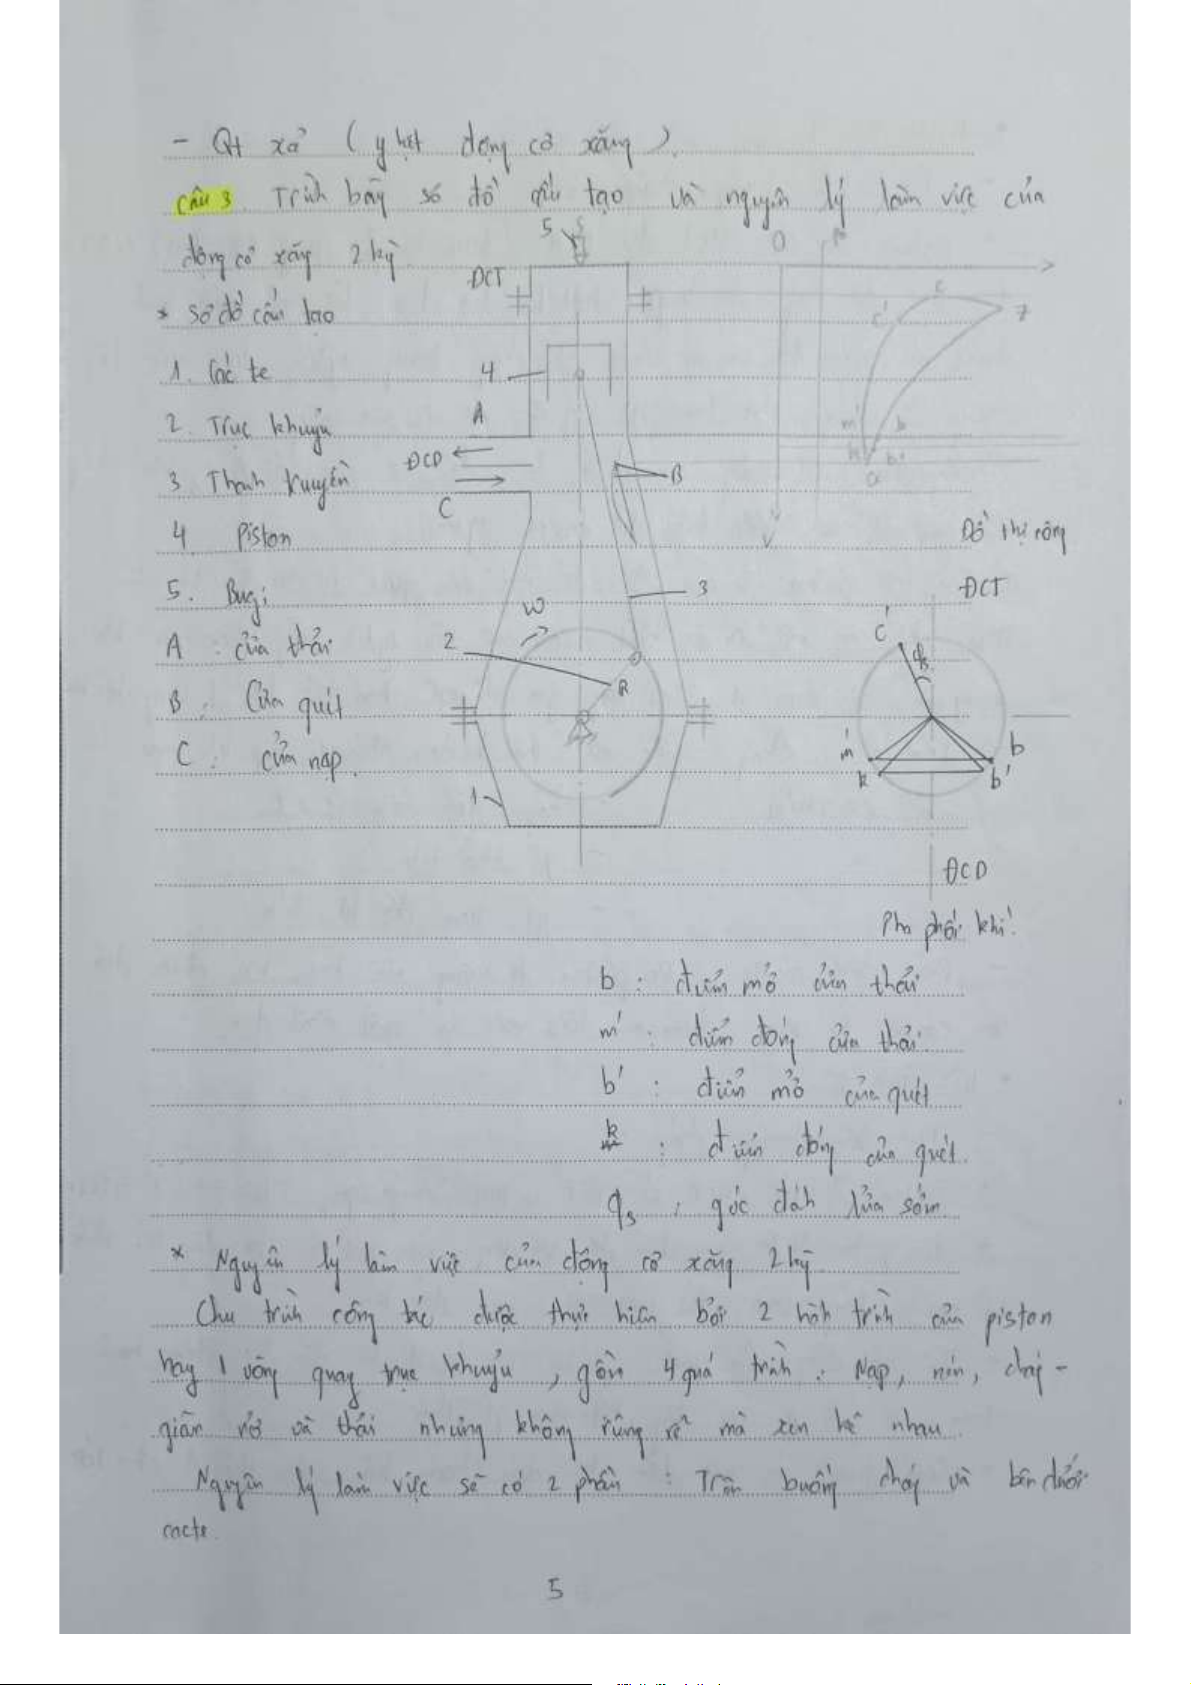 - Qt xả (y hệt động cơ xăng).
Câu 3. Trình bày sơ đồ cấu tạo và nguyên lý làm việc của
động cơ xăng 2 kỳ.
* Sơ đồ cấu tạo
1. Các te
2. Trục khuỷu
3. Thanh truyền
4 Piston
5. Bugi
A : cửa thải
B : Cửa quét
C : cửa nạp.
5
ĐCT
4
A
ĐCD
C
B
3
W
2
R
1
O
P
c
c'
z
m'
b
k
b'
a
V
Đồ thị công
ĐCT
c'
φs
m'
k
b
b'
ĐCD
Pha phối khí.
b : điểm mở cửa thải
m' : điểm đóng cửa thải.
b' : điểm mở cửa quét
k : điểm đóng cửa quét.
φs : góc đánh lửa sớm.
* Nguyên lý làm việc của động cơ xăng 2 kỳ
Chu trình công tác được thực hiện bởi 2 hành trình của piston
hay 1 vòng quay trục khuỷu, gồm 4 quá trình : Nạp, nén, cháy -
giãn nở và thải nhưng không riêng rẽ mà xen kẽ nhau.
Nguyên lý làm việc sẽ có 2 phần : Trên buồng cháy và bên dưới
cacte.
5